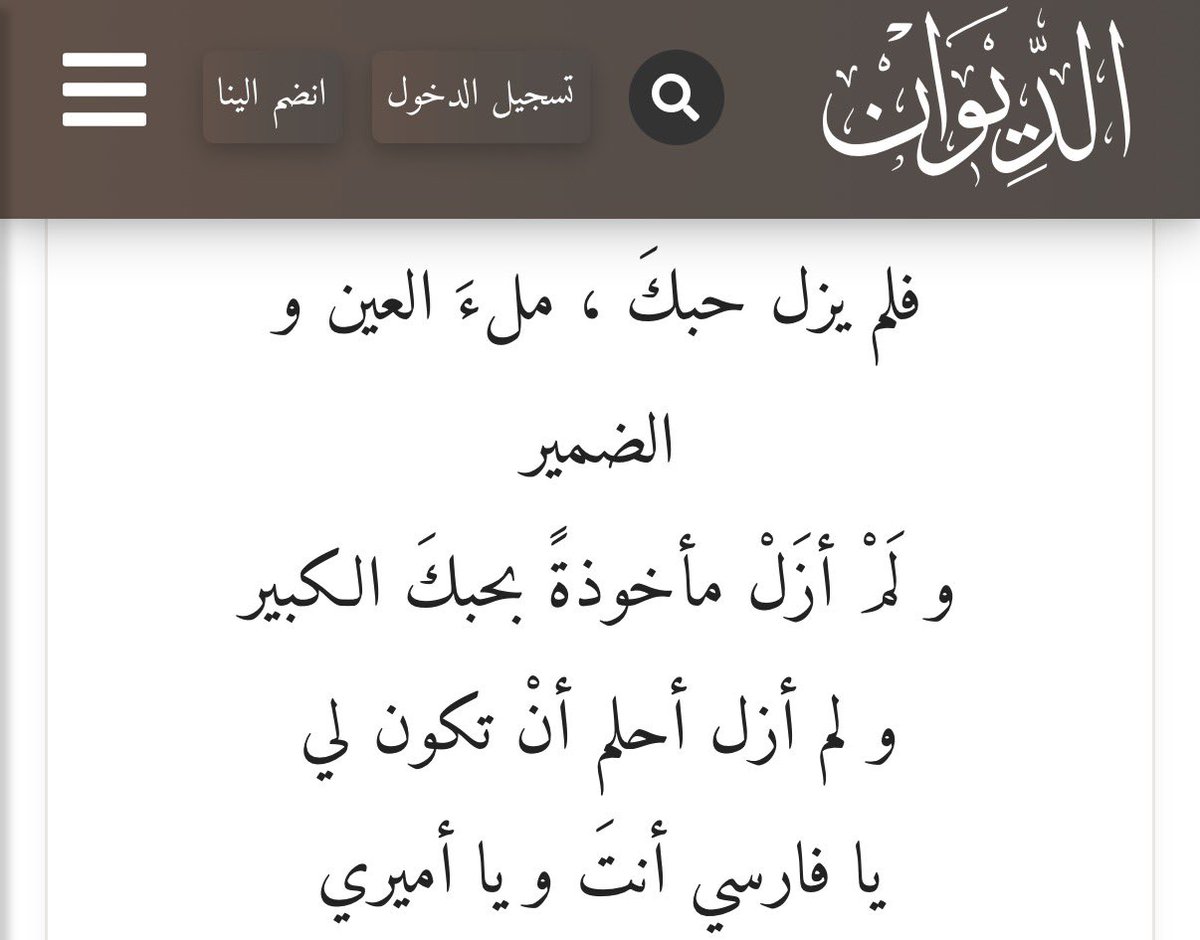 الدِّيوَانْ
تسجيل الدخول
انضم الينا
فلم يزل حبكَ ، ملءَ العين و
الضمير
و لَمْ أزَلْ مأخوذةً بحبكَ الكبير
و لم أزل أحلم أنْ تكون لي
يا فارسي أنتَ و يا أميري